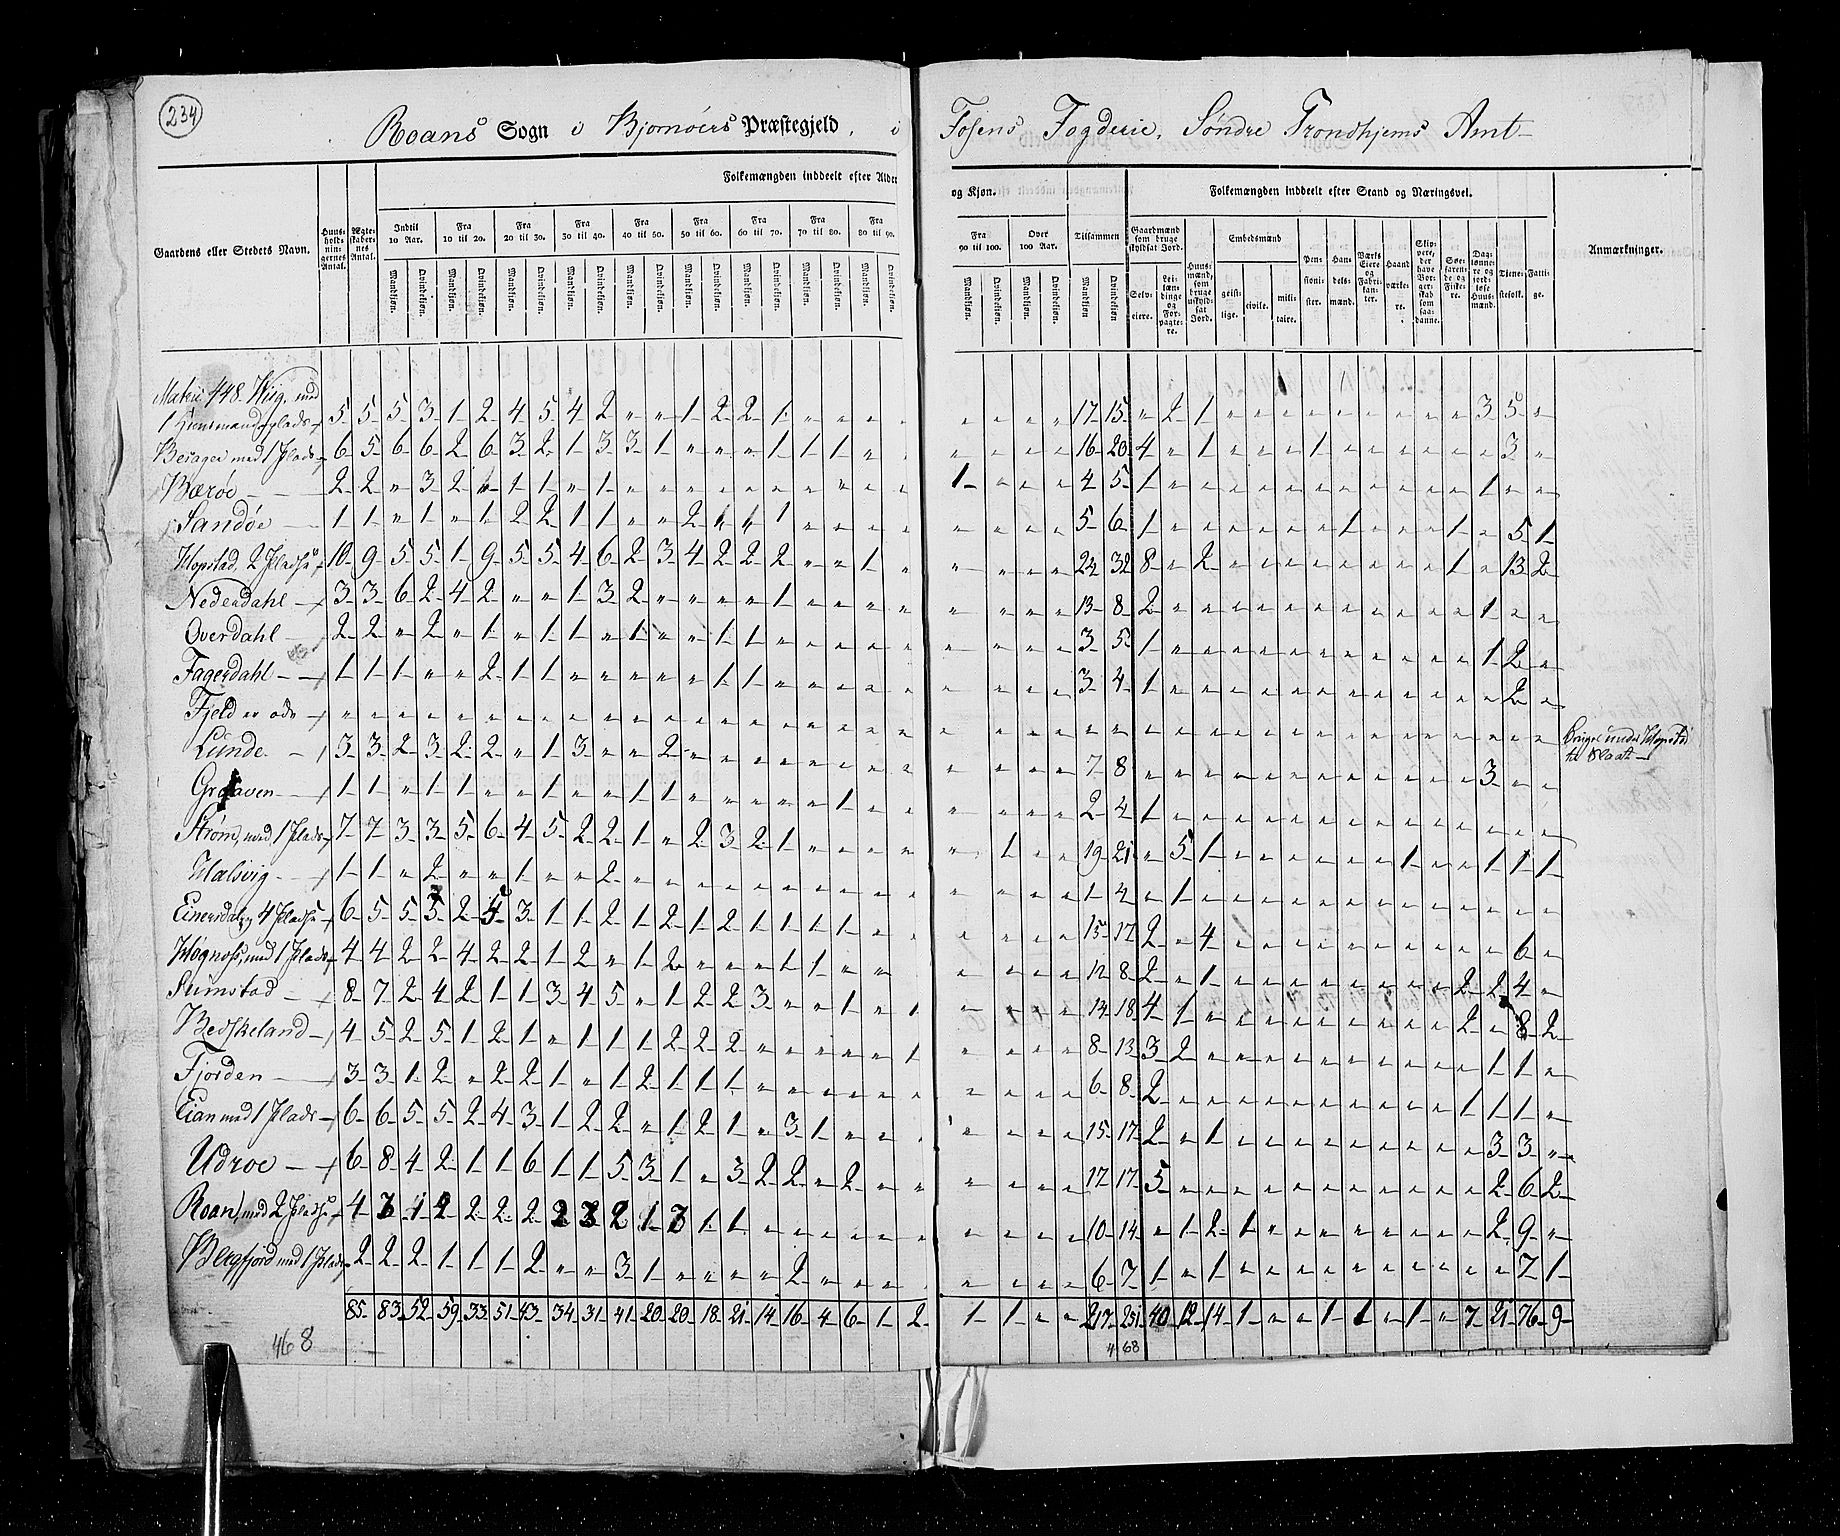 234
Roans Sogn i Bjørnøers Præstegjeld, i Fosens Fogderie, Søndre Trondhjems Amt
Gaardens eller Stedets Navn.
Huus-holdnin-gernes Antal.
Ægte-skaber-nes Antal.
Folkemængden inddeelt efter Alder og Kjøn.
Indtil 10 Aar. Fra 10 til 20. Fra 20 til 30. Fra 30 til 40. Fra 40 til 50. Fra 50 til 60. Fra 60 til 70. Fra 70 til 80. Fra 80 til 90. Fra 90 til 100. Over 100 Aar. Tilsammen
Mandkjøn. Qvindekjøn.
Folkemængden inddeelt efter Stand og Næringsvei.
Gaardmænd som bruge skyldsat Jord.
Selv-eiere. Lei-læn-dinge og For-pagte-re.
Huus-mænd, som bruge uskyld-sat Jord.
Embedsmænd
geist-lige. civile. mili-taire.
Pen-sioni-ster. Han-dels-mænd. Værks Eiere og Fabri-kan-ter. Haand-værke-re. Skip-pere, der have Bor-ger-skab som saa-danne. Søe-faren-de og Fiske-re. Dag-lønne-re og jord-løse Huus-mænd. Tjene-stefolk. Fatti-ge.
Anmærkninger.
Matri 448. med
1 Huusmandsplads 5 5 5 3 1 2 4 5 4 2 " " 1 2 2 1 " " " " " " " " 17 15 " 2 1 " " " " " " " " " 3 5 "
Besager med 1 Plads 6 5 6 6 2 6 3 2 1 3 3 1 " " " 1 1 1 " " " " " " 16 20 4 " 1 " " " 1 " " " " " " 3 "
Bærøe 2 2 " 3 2 " 1 1 " 1 " " " " " " " " " " 1 " " " 4 5 1 " " " " " " " " " " " 1 " "
Sandøe 1 1 " 1 " 1 2 2 1 1 " " 2 " " 1 " " " " " " " " 5 6 1 " " " " " " 1 " " " 1 " 5 1
Hopstad, 2 Pladse 10 9 5 5 1 9 5 5 4 6 2 3 4 2 2 2 " " 1 " " " " " 24 32 8 " 2 " " " " " " " " 1 " 13 2
Nederdahl 3 3 6 2 4 2 " " 1 3 2 " " " " 1 " " " " " " " " 13 8 2 " " " " " " " " " " " 1 " "
Overdahl 2 2 " 2 " 1 " 1 1 " 1 " " 1 1 " " " " " " " " " 3 5 1 " " " " " " " " " " " 1 2 "
Fagerdahl 1 1 1 " " 2 1 1 " " " " " 1 1 " " " " " " " " " 3 4 1 " " " " " " " " " " " " 2 "
Fjeld er øde " " " " " " " " " " " " " " " " " " " " " " " " " " " " " " " " " " " " " " " under Hopstad
Lunde 3 3 2 3 2 2 " 1 3 " " 2 " " " " " " " " " " " " 7 8 " " " " " " " " " " " " 3 " "
Graaven 1 1 " 1 1 " " 1 " 1 1 " " " " " 1 " " " " " " " 2 4 1 " " " " " " " " " " " " " "
Strøm, med 1 Plads 7 7 3 3 5 6 4 5 2 2 1 " 2 3 2 1 " " " " " 1 " " 19 21 " 5 1 " " " " " " 1 " " 1 1 1
Halsvig 1 1 " 2 " " 1 " " 2 " " " " " " " " " " " " " " 1 4 " 1 " " " " " " " " " " " " "
Einersdal, 4 Pladse 6 5 5 3 2 5 3 1 1 2 1 2 1 2 1 1 1 1 " " " " " " 15 17 2 " 4 " " " " " " " " " " 6 "
Høgnæss, med 1 Plads 4 4 2 2 4 2 2 1 2 " 1 2 " " " 1 1 " " " " " " " 12 8 2 " 1 " " " " " " " " 2 2 4 "
Sumstad 8 7 2 4 2 1 1 3 4 5 " 1 2 2 3 " " 1 " 1 " " " " 14 18 4 1 " " " " " " " " " 2 " 8 2
Beskeland 4 5 2 5 1 2 1 " 1 1 1 2 2 2 " " " " " 1 " " " " 8 13 3 2 " " " " " " " " " " 1 1 "
Fjorden 3 3 1 2 " 2 2 1 " 1 2 1 1 1 " " " " " " " " " " 6 8 2 " " " " " " " " " " 1 1 1 "
Eian med 1 Plads 6 6 5 5 2 4 3 1 2 2 " 1 2 1 " 3 1 " " " " " " " 15 17 2 " 1 " " " " " " " " " 3 3 "
Udroe 6 8 4 2 1 1 6 1 1 5 3 1 " 3 2 2 " 2 " " " " " " 17 17 5 " " " " " " " " " " " 2 6 2
Roan, med 2 Pladse 4 3 1 2 2 2 2 2 3 2 1 3 1 1 " " " " " " " " " " 10 14 " 1 2 1 " " " " " " " " 2 9 "
Bergfjord med 1 Plads 2 2 2 1 1 1 2 " " 3 1 " " " " 2 " " " " " " " " 6 7 1 " 1 " " " " " " " " " " 7 1
85 83 52 59 33 51 43 34 31 41 20 20 18 21 14 16 4 6 1 2 1 1 " " 217 251 40 12 14 1 " " 1 1 " 1 " 7 21 76 9
468
468